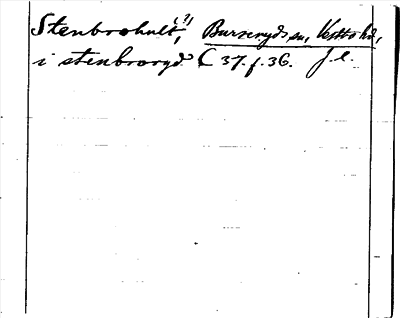 Stenbrohult (?), Burseryds sn, Västbo hd,
i stenbroryd C 37. f. 36. J. l.